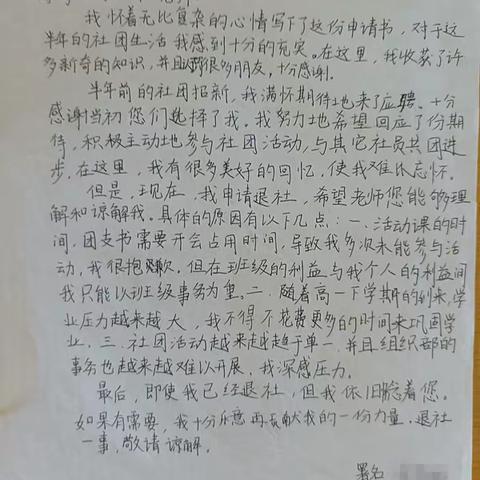 我怀着无比复杂的心情写下了这份申请书，对于这
半年的社团生活我感到十分的充实。在这里，我收获了许
多新奇的知识，并且认识很多朋友，十分感谢。
半年前的社团招新，我满怀期待地来了应聘。十分
感谢当初您们选择了我。我努力地希望回应了份期
待，积极主动地参与社团活动，与其它社员共同进
步。在这里，我有很多美好的回忆，使我难以忘怀。
但是，现在，我申请退社，希望老师您能够理
解和谅解我。具体的原因有以下几点：一、活动课的时
间，团支书需要开会占用时间，导致我多次未能参与活
动，我很抱歉。但在班级的利益与我个人的利益间
我只能以班级事务为重。二、随着高一下学期的到来，学
业压力越来越大，我不得不花费更多的时间来巩固学
业。三、社团活动越来越趋于单一，并且组织部的
事务也越来越难以开展，我深感压力。
最后，即使我已经退社，但我依旧念着您。
如果有需要，我十分乐意再贡献我的一份力量。退社
一事，敬请谅解。
署名